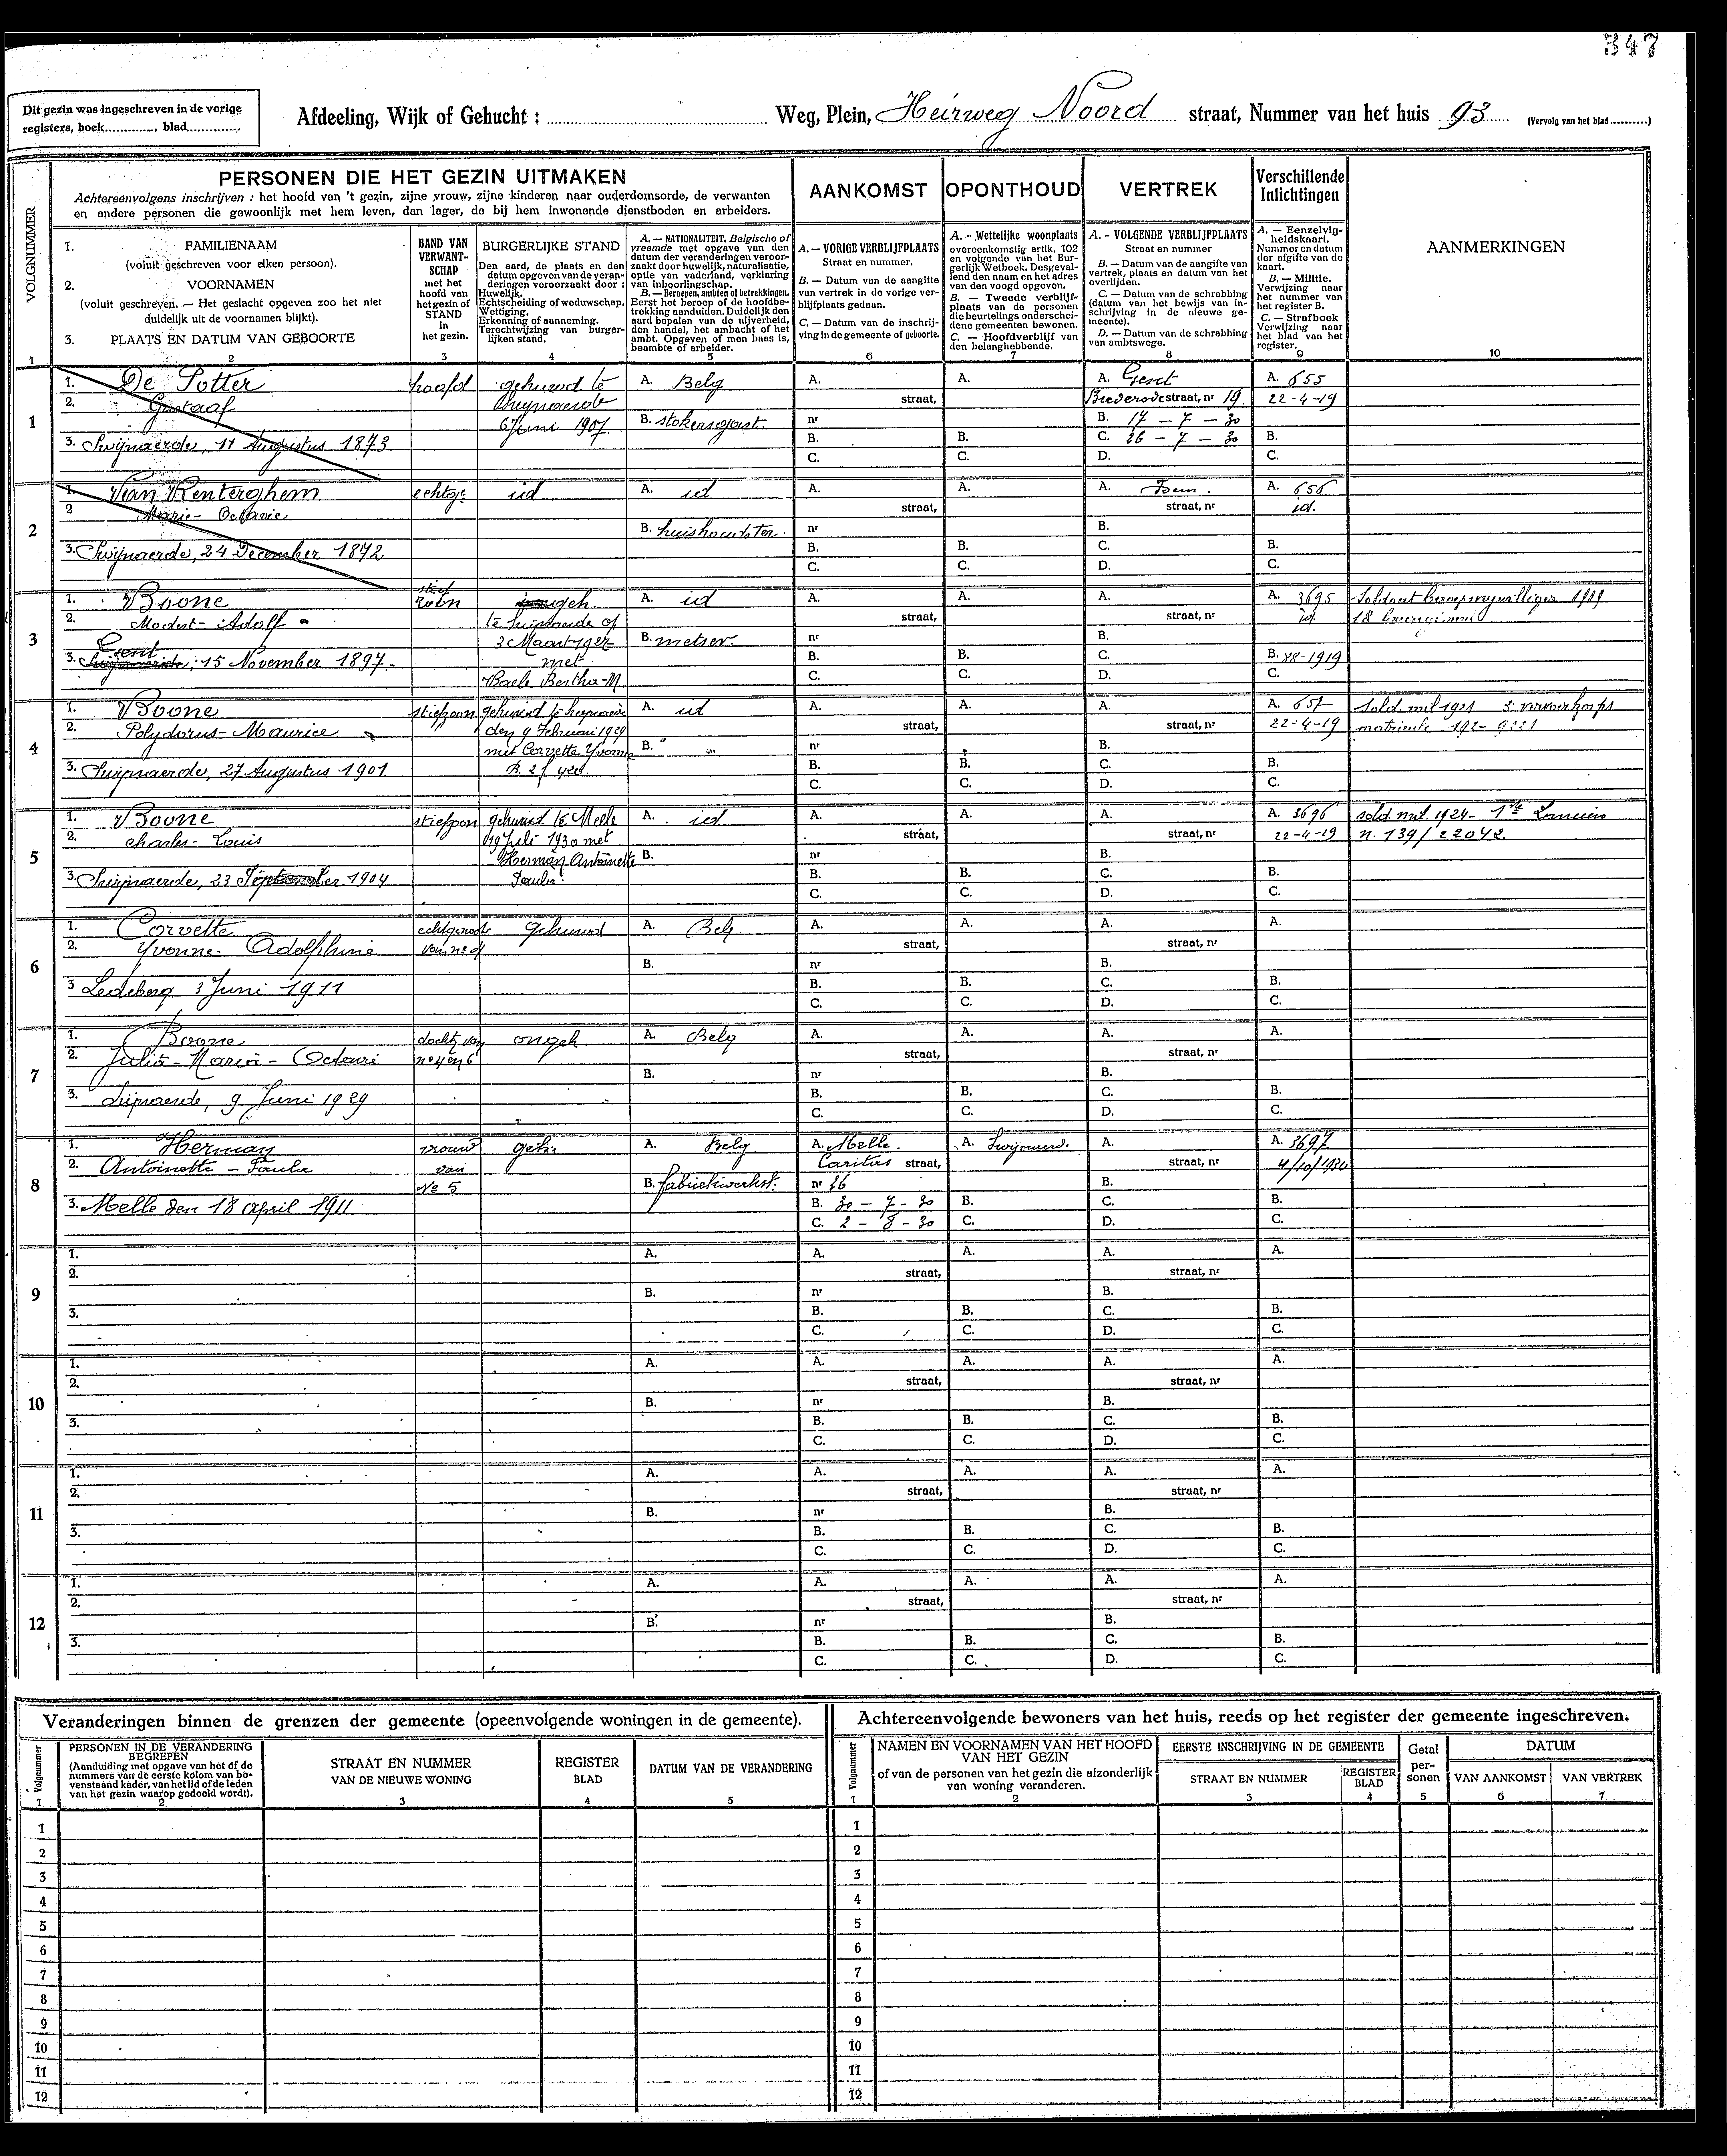 347
Dit gezin was ingeschreven in de vorige
registers, boek............., blad..............
Afdeeling, Wijk of Gehucht : ........ Weg, Plein, Heirweg Noord straat, Nummer van het huis 93 (Vervolg van het blad ..........)
VOLGNUMMER
PERSONEN DIE HET GEZIN UITMAKEN
Achtereenvolgens inschrijven : het hoofd van 't gezin, zijne vrouw, zijne kinderen naar ouderdomsorde, de verwanten
en andere personen die gewoonlijk met hem leven, dan lager, de bij hem inwonende dienstboden en arbeiders.
AANKOMST
OPONTHOUD
VERTREK
Verschillende
Inlichtingen
1. FAMILIENAAM
(voluit geschreven voor elken persoon).
2. VOORNAMEN
(voluit geschreven, — Het geslacht opgeven zoo het niet
duidelijk uit de voornamen blijkt).
3. PLAATS EN DATUM VAN GEBOORTE
BAND VAN
VERWANT-
SCHAP
met het
hoofd van
het gezin of
STAND
in
het gezin.
BURGERLIJKE STAND
Den aard, de plaats en den
datum opgeven van de veran-
deringen veroorzaakt door :
Huwelijk.
Echtscheiding of weduwschap.
Wettiging.
Erkenning of aanneming.
Terechtwijzing van burger-
lijken stand.
A. — NATIONALITEIT, Belgische of
vreemde met opgave van den
datum der veranderingen veroor-
zaakt door huwelijk, naturalisatie,
optie van vaderland, verklaring
van inboorlingschap.
B. — Beroepen, ambten of betrekkingen.
Eerst het beroep of de hoofdbe-
trekking aanduiden. Duidelijk den
aard bepalen van de nijverheid,
den handel, het ambacht of het
ambt. Opgeven of men baas is,
beambte of arbeider.
A. — VORIGE VERBLIJFPLAATS
Straat en nummer.
B. — Datum van de aangifte
van vertrek in de vorige ver-
blijfplaats gedaan.
C. — Datum van de inschrij-
ving in de gemeente of geboorte.
A. - Wettelijke woonplaats
overeenkomstig artik. 102
en volgende van het Bur-
gerlijk Wetboek. Desgeval-
lend den naam en het adres
van den voogd opgeven.
B. — Tweede verblijf-
plaats van de personen
die beurtelings onderschei-
dene gemeenten bewonen.
C. — Hoofdverblijf van
den belanghebbende.
A. - VOLGENDE VERBLIJFPLAATS
Straat en nummer
B. — Datum van de aangifte van
vertrek, plaats en datum van het
overlijden.
C. — Datum van de schrabbing
(datum van het bewijs van in-
schrijving in de nieuwe ge-
meente).
D. — Datum van de schrabbing
van ambtswege.
A. — Eenzelvig-
heidskaart.
Nummer en datum
der afgifte van de
kaart.
B. — Militie.
Verwijzing naar
het nummer van
het register B.
C. — Strafboek
Verwijzing naar
het blad van het
register.
AANMERKINGEN
1 2 3 4 5 6 7 8 9 10
1
1. De Potter hoofd gehuwd te A. Belg A. A. A. Gent A. 655
2. Gustaaf straat, Brederode straat, nr 19. 22-4-19
6 Juni 1907. B. stokersgast. nr B. 17 - 7 - 30
3. Swijnaerde, 11 Augustus 1873 B. B. C. 26 - 7 - 30 B.
C. C. D. C.
2
1. Van Renterghem echtge id A. id A. A. A. Idem. A. 656
2 Marie- Octavie straat, straat, nr id.
B. huishoudster. nr B.
3. Swijnaerde, 24 December 1872 B. B. C. B.
C. C. D. C.
3
stief
1. Boone zoon geh. A. id A. A. A. A. 3695 Soldaat beroepsvrijwilliger 1919
2. Modest- Adolf straat, straat, nr id.
3 Maart 1927 B. metser. nr B.
Gent
3. Swijnaerde, 15 November 1897 met B. B. C. B. 88-1919
Baele Bertha-M C. C. D. C.
4
1. Boone stiefzoon gehuwd te Swijnaerde A. id A. A. A. A. 657 Sold. mil 1921 3e vervoerkorps
2. Polydorus- Maurice den 9 Februari 1929 straat, straat, nr 22-4-19
met Corvette Yvonne B. nr B.
3. Swijnaerde, 27 Augustus 1901 B. B. C. B.
C. C. D. C.
5
1. Boone stiefzoon gehuwd te Melle A. id A. A. A. A. 3696 sold. mil. 1924- 1ste Lanciers
2. Charles- Louis 19 Juli 1930 met straat, straat, nr 22-4-19 n. 139/22042.
Herman Antoinette B. nr B.
3. Swijnaerde, 23 September 1904 Paula. B. B. C. B.
C. C. D. C.
6
1. Corvette echtgenoote gehuwd A. Belg A. A. A. A.
2. Yvonne- Adolphine van no 4 straat, straat, nr
B. nr B.
3 Ledeberg 3 Juni 1911 B. B. C. B.
C. C. D. C.
7
1. Boone docht. van ongeh. A. Belg A. A. A. A.
2. Julia- Maria- Octavie no 4 en 6 straat, straat, nr
B. nr B.
3. Swijnaerde, 9 Juni 1929 B. B. C. B.
C. C. D. C.
8
1. Herman vrouw geh. A. Belg A. Melle. A. Swijnaerd. A. A. 3697
2. Antoinette - Paula van Caritas straat, straat, nr 4/10/1930
No 5 B. fabriekwerkst. nr 26 B.
3. Melle den 18 april 1911 B. 30 - 7 - 30 B. C. B.
C. 2 - 8 - 30 C. D. C.
9
1. A. A. A. A. A.
2. straat, straat, nr
B. nr B.
3. B. B. C. B.
C. C. D. C.
10
1. A. A. A. A. A.
2. straat, straat, nr
B. nr B.
3. B. B. C. B.
C. C. D. C.
11
1. A. A. A. A. A.
2. straat, straat, nr
B. nr B.
3. B. B. C. B.
C. C. D. C.
12
1. A. A. A. A. A.
2. straat, straat, nr
B. nr B.
3. B. B. C. B.
C. C. D. C.
Veranderingen binnen de grenzen der gemeente (opeenvolgende woningen in de gemeente).
Volgnummer
PERSONEN IN DE VERANDERING
BEGREPEN
(Aanduiding met opgave van het of de
nummers van de eerste kolom van bo-
venstaand kader, van het lid of de leden
van het gezin waarop gedoeld wordt).
STRAAT EN NUMMER
VAN DE NIEUWE WONING
REGISTER
BLAD
DATUM VAN DE VERANDERING
1 2 3 4 5
1
2
3
4
5
6
7
8
9
10
11
12
Achtereenvolgende bewoners van het huis, reeds op het register der gemeente ingeschreven.
Volgnummer
NAMEN EN VOORNAMEN VAN HET HOOFD
VAN HET GEZIN
of van de personen van het gezin die afzonderlijk
van woning veranderen.
EERSTE INSCHRIJVING IN DE GEMEENTE
STRAAT EN NUMMER
REGISTER
BLAD
Getal
per-
sonen
DATUM
VAN AANKOMST
VAN VERTREK
1 2 3 4 5 6 7
1
2
3
4
5
6
7
8
9
10
11
12